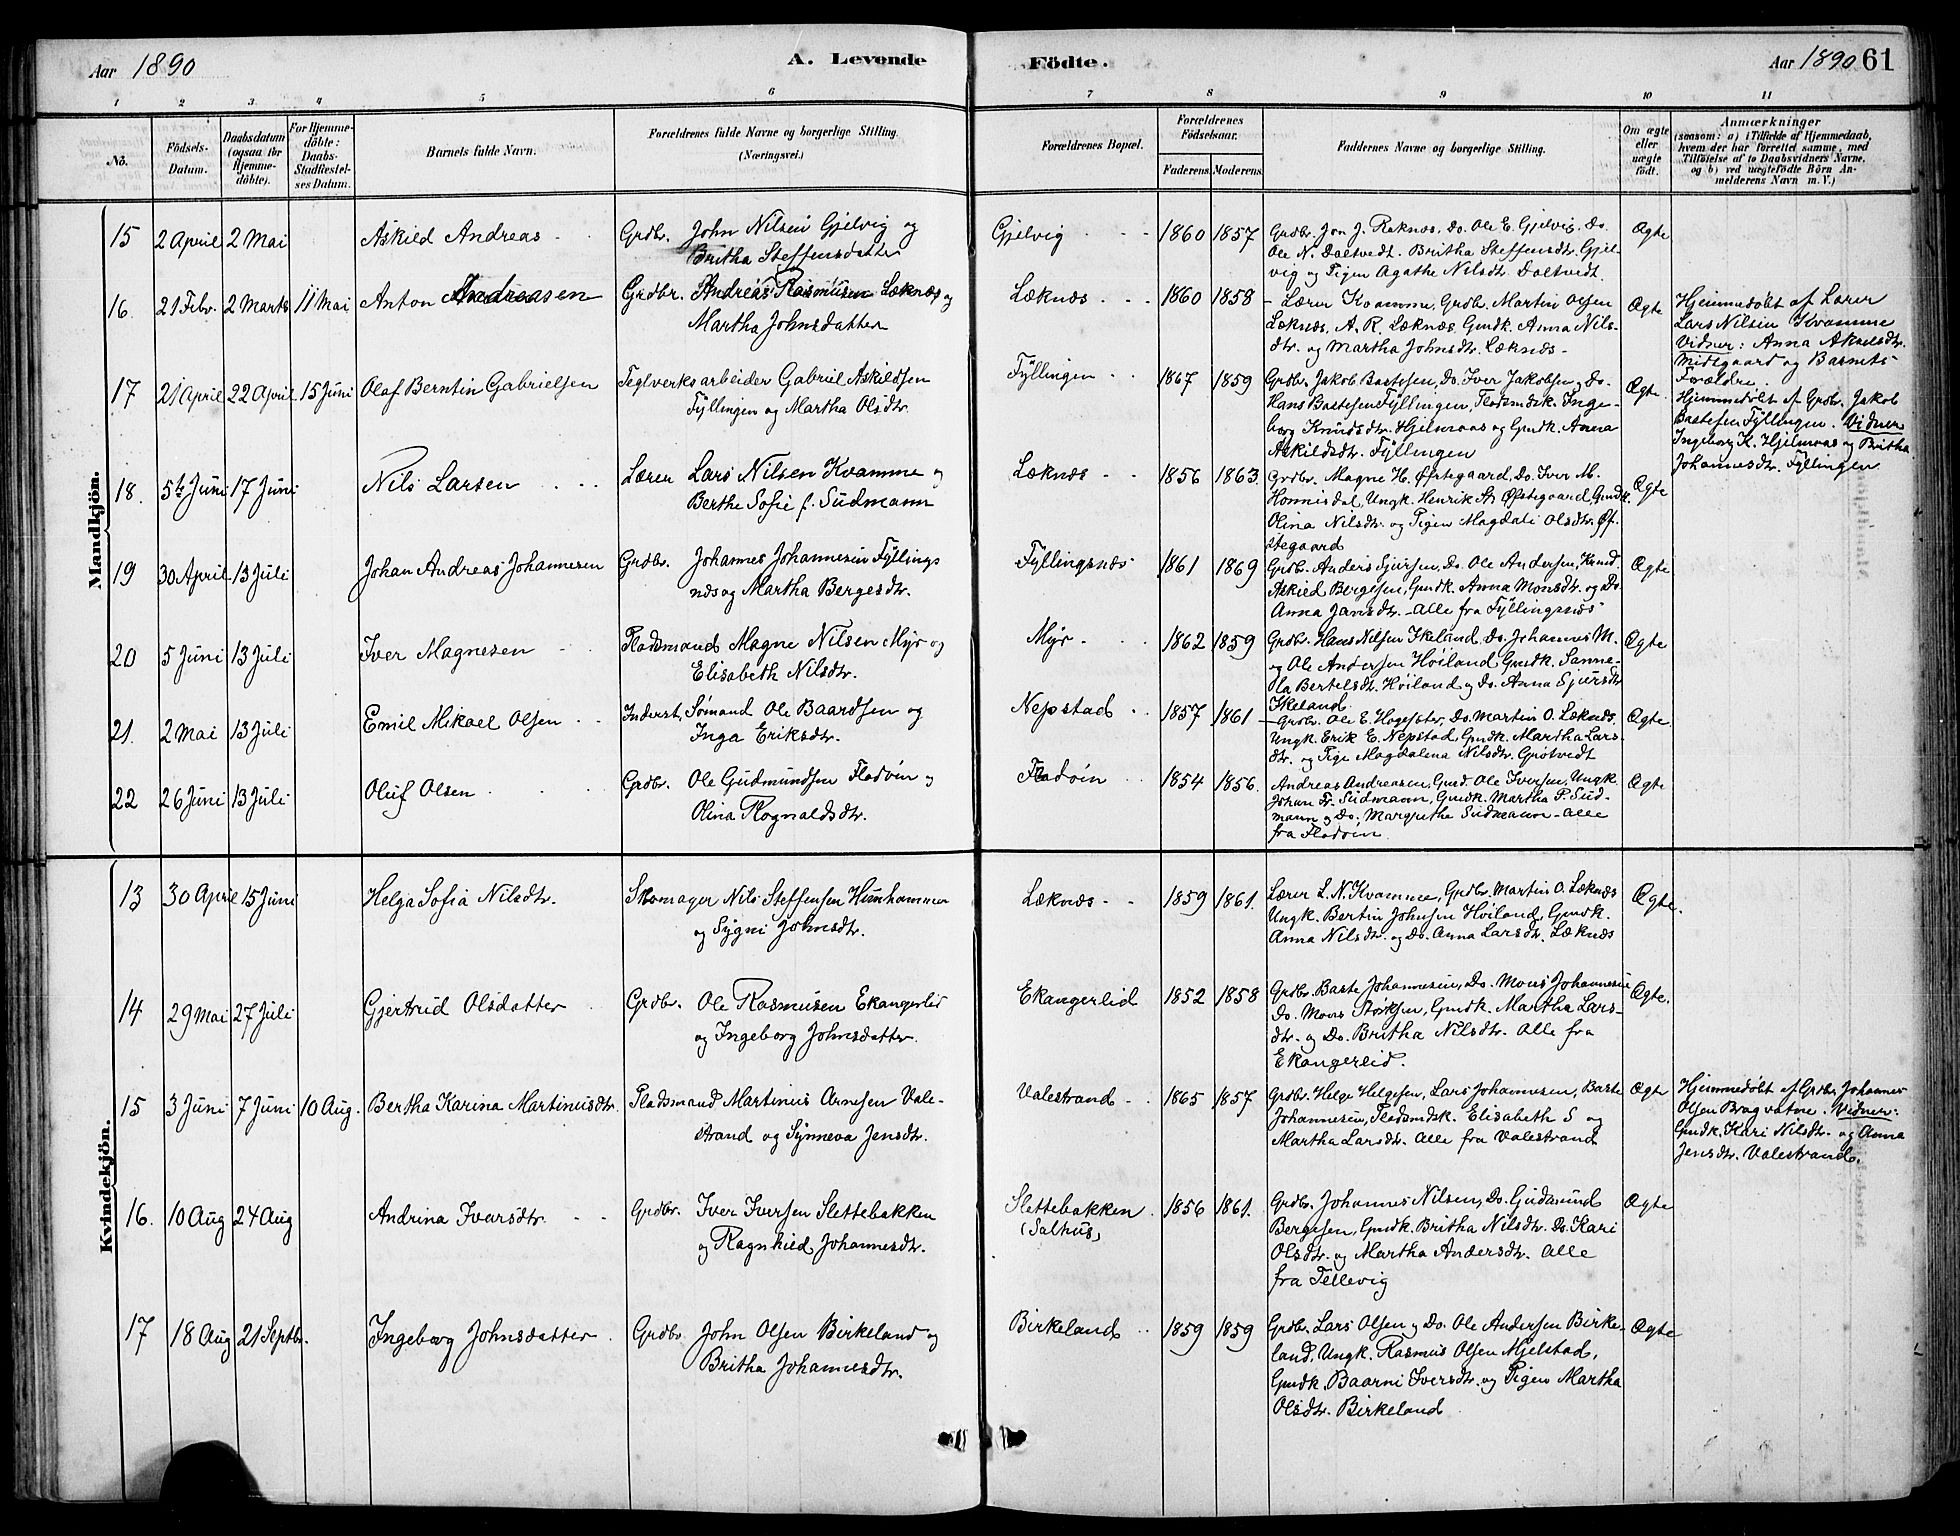 Aar 1890
A. Levende
Födte.
Aar 1890 61
1 2 3 4 5 6 7 8 9 10 11
No.
Födsels-
Datum.
Daabsdatum
(ogsaa for
Hjemme-
döbte).
For Hjemme-
döbte:
Daabs-
Stadfæstel-
ses Datum.
Barnets fulde Navn.
Forældrenes fulde Navne og borgerlige Stilling.
(Næringsvei.)
Forældrenes Bopæl.
Forældrenes
Födselsaar.
Faderens. Moderens.
Faddernes Navne og borgerlige Stilling.
Om ægte
eller
uægte
født.
Anmærkninger
(saasom: a) i Tilfælde af Hjemmedaab,
hvem der har forrettet samme, med
Tilföielse af to Daabsvidners Navne,
og b) ved uægtefödte Börn An-
melderens Navn m. V.)
Mandkjön.
15 2 April 2 Mai Askild Andreas
Grdbr. John Nilsen Gjelvig og
Britha Steffensdatter
Gjelvig 1860 1857
Grdbr. Jon J. Raknes, Do. Ole E. Gjelvig, Do.
Ole N. Daltvedt. Britha Steffensdtr. Gjel-
vig og Pigen Agathe Nilsdt. Daltvedt.
Ægte
16. 21 Febr. 2 Marts 11 Mai Anton Andreasen
Grdbr. Andreas Rasmusen Leknes og
Martha Johnsdatter
Leknes 1860 1858
Lærer Kvamme, Grdbr. Martin Olsen
Leknes, A. R. Leknes, Gmdk. Anna Nils-
dtr. og Martha Johnsdtr. Leknes
Ægte
Hjemmedøbt af Lærer
Lars Nilsen Kvamme
Vidner: Anna Akselsdtr.
Midtgaard og Barnets
Forældre.
17 21 April 22 April 15 Juni Olaf Berntin Gabrielsen
Teglverksarbeider Gabriel Askildsen
Fyllingen og Martha Olsdtr.
Fyllingen 1867 1859
Grdbr. Jakob Bastesen, Do. Iver Jakobsen og Do.
Hans Bastesen Fyllingen, Pladsmdsk. Inge-
borg Knudsdtr. Hjelmaas og Gmdk. Anna
Askildsdtr. Fyllingen
Ægte.
Hjemmedøbt af Grdbr. Jakob
Bastesen Fyllingen. Vidner
Ingeborg K. Hjelmaas og Britha
Johannesdtr. Fyllingen
18. 5te Juni 17 Juni Nils Larsen
Lærer Lars Nilsen Kvamme og
Berthe Sofie f. Sudmann
Leknes 1856 1863.
Grdbr. Magne H. Øfstegaard, Do. Iver M.
Honnisdal, Ungk. Henrik St. Øfstegaard, Gmdk.
Olina Nilsdtr. og Pigen Magdali Olsdtr. Øf-
stegaard
Ægte
19 30 April 13 Juli Johan Andreas Johannesen
Grdbr. Johannes Johannesen Fyllings
næs og Martha Bergesdtr.
Fyllingsnæs 1861 1869
Grdbr. Anders Sjursen, Do. Ole Andersen, Knud
Askild Bergesen, Gmdk. Anna Monsdtr. og Do.
Anna Jansdtr. Alle fra Fyllingsnæs
Ægte
20 5 Juni 13 Juli Iver Magnesen
Pladsmand Magne Nilsen Myr og
Elisabeth Nilsdtr.
Myr 1862 1859
Grdbr. Hans Nilsen Ikeland, Do. Johannes M.
og Ole Andersen Høiland, Gmdk. Sanne-
va Bertelsdtr. Høiland og Do. Anna Sjursdtr
Ikeland
Ægte
21. 2 Mai 13 Juli Emil Mikael Olsen
Inderst, Sømand Ole Baardsen og
Inga Eriksdtr.
Nepstad 1857 1861
Grdbr. Ole E. Hopester, Do. Martin O. Leknes,
Ungk. Erik E. Nepstad, Gmdk. Martha Lars-
dtr. og Pige Magdalena Nilsdtr. Grøtvedt
Ægte
22 26 Juni 13 Juli Oluf Olsen
Grdbr. Ole Gudmundsen Fladøen og
Olina Rognaldsdtr.
Fladøen 1854 1856.
Andreas Andreasen, Gmd. Ole Iversen, Ungk.
Johan Fr. Sudmann, Gmdk. Martha P. Sud-
mann og Do. Margrethe Sudmann - alle
fra Fladøen
Ægte
Kvindekjön.
13 30 April 15 Juni Helga Sofia Nilsdtr.
Skomager Nils Steffensen Hunhammer
og Sygni Johnsdtr.
Leknes 1859 1861.
Lærer L. N. Kvamme, Grdbr. Martin O. Leknes
Ungk. Bertin Johnsen Høiland, Gmdk.
Anna Nilsdtr. og Do. Anna Larsdtr. Leknes
Ægte.
14 29 Mai 27 Juli Gjertrud Olsdatter
Grdbr. Ole Rasmusen Ekangerlid
og Ingeborg Johnsdatter.
Ekangerlid 1852 1858
Grdbr. Baste Johannesen, Do. Mons Johannesen
Do. Mons Størksen, Gmdk. Martha Lars-
dtr. og Do. Britha Nilsdtr. Alle fra
Ekangerlid.
Ægte.
15 3 Juni 7 Juni 10 Aug. Bertha Karina Martinusdtr.
Pladsmand Martinus Arnesen Vale-
strand og Synneva Jensdtr.
Valestrand 1865 1857
Grdbr. Helge Helgesen, Lars Johannesen, Baste
Johannesen, Pladsmdsk. Elisabeth S og
Martha Larsdtr. Alle fra Valestrand
Ægte
Hjemmedøbt af Grdbr. Johannes
Olsen Bragvatne. Vidner:
Gmdk. Kari Nilsdtr. og Anna
Jensdtr. Valestrand.
16. 10 Aug 24 Aug Andrina Iversdtr.
Grdbr. Iver Iversen Slettebakken
og Ragnhild Johannesdtr.
Slettebakken
(Salhus)
1856 1861.
Grdbr. Johannes Nilsen, Do. Gudmund
Bergesen, Gmdk. Britha Nilsdtr. Do. Kari
Olsdtr. og Martha Andersdtr. alle
fra Tellevig
Ægte
17 18 Aug 21 Septbr. Ingeborg Johnsdatter
Grdbr. John Olsen Birkeland og
Britha Johannesdtr.
Birkeland 1859 1859
Grdbr. Lars Olsen og Do. Ole Andersen Birke-
land, Ungk. Rasmus Olsen Mjelstad,
Gmdk. Baarni Iversdtr. og Pigen Martha
Olsdtr. Birkeland
Ægte